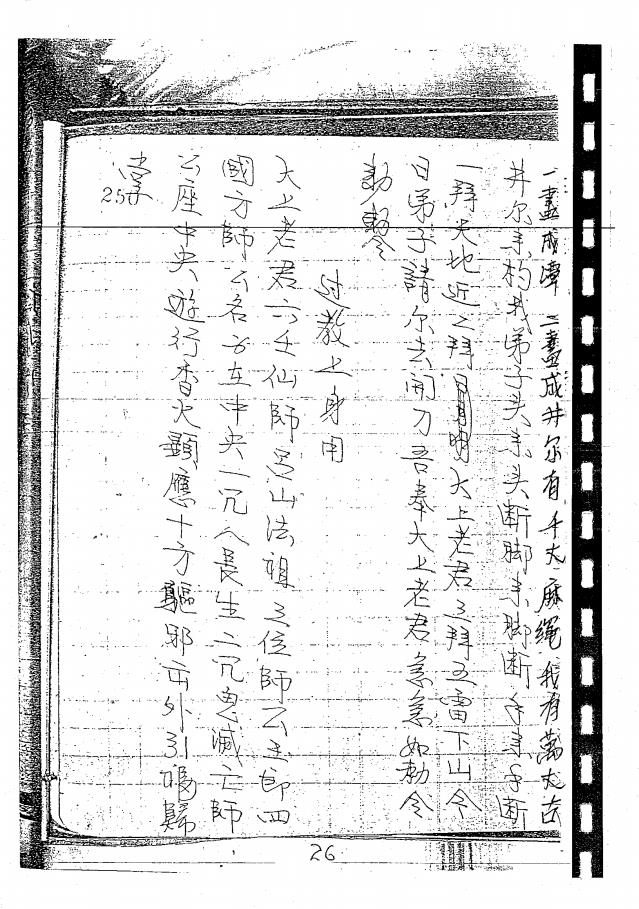 一畫成潭二畫成井尔有千丈麻绳我有萬丈古
井尔来构我弟子头来头断脚来脚断手来手断
一拜天地近二拜日月明大上老君三拜五雷下山令
日弟子請尔去開刀吾奉大上老君急急如勅令
勅勅令
过教上身用
大上老君六壬仙師吕山法祖三位師公主郎四
國方師公各分在中央一咒人長生二咒鬼滅亡師
公座中央遊行香火顯應十方驅邪出外引福歸
堂
25
26